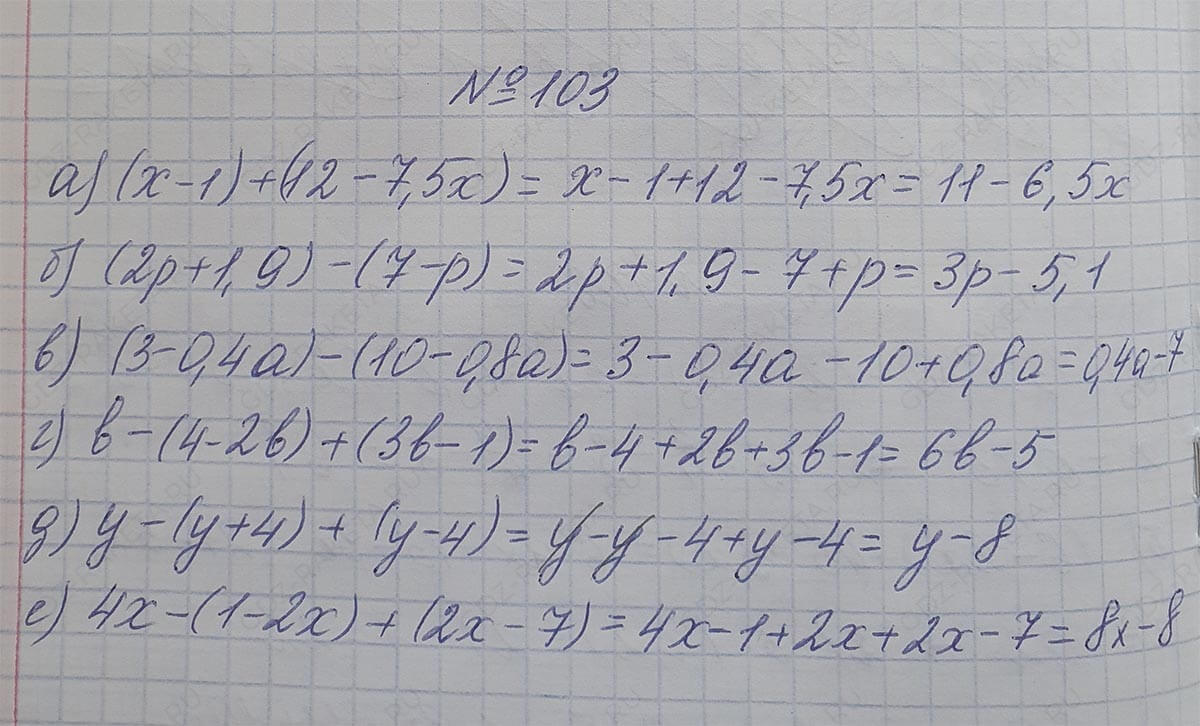 №103
а) (x-1)+(12-7,5x)= x-1+12-7,5x= 11-6,5x
б) (2p+1,9)-(7-p)=2p+1,9-7+p=3p-5,1
в) (3-0,4a)-(10-0,8a)=3-0,4a-10+0,8a=0,4a-7
г) b-(4-2b)+(3b-1)=b-4+2b+3b-1=6b-5
д) y-(y+4)+(y-4)=y-y-4+y-4=y-8
е) 4x-(1-2x)+(2x-7)=4x-1+2x+2x-7=8x-8